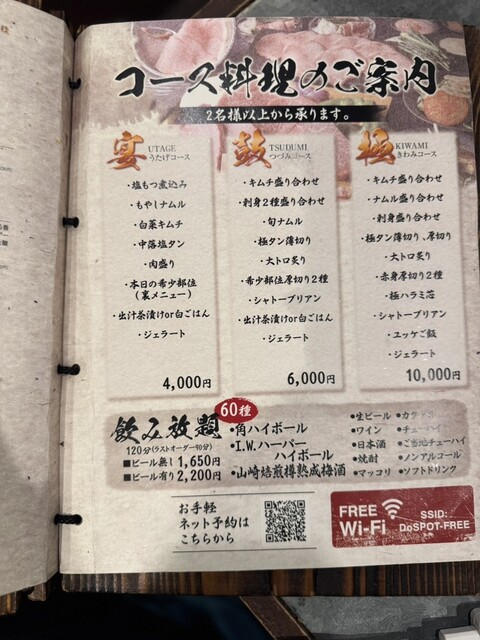 コース料理のご案内
2名様以上から承ります。
宴 UTAGE
うたげコース
・塩もつ煮込み
・もやしナムル
・白菜キムチ
・中落塩タン
・肉盛り
・本日の希少部位
(裏メニュー)
・出汁茶漬けor白ごはん
・ジェラート
4,000円
鼓 TSUDUMI
つづみコース
・キムチ盛り合わせ
・刺身2種盛り合わせ
・旬ナムル
・極タン薄切り
・大トロ炙り
・希少部位厚切り2種
・シャトーブリアン
・出汁茶漬けor白ごはん
・ジェラート
6,000円
極 KIWAMI
きわみコース
・キムチ盛り合わせ
・ナムル盛り合わせ
・刺身盛り合わせ
・極タン薄切り、厚切り
・大トロ炙り
・赤身厚切り2種
・極ハラミ芯
・シャトーブリアン
・ユッケご飯
・ジェラート
10,000円
飲み放題
60種
120分(ラストオーダー90分)
■ビール無し 1,650円
■ビール有り 2,200円
•角ハイボール
•I.W.ハーパー
ハイボール
•山崎焙煎樽熟成梅酒
•生ビール
•ワイン
•日本酒
•焼酎
•マッコリ
•チューハイ
•ご当地チューハイ
•ノンアルコール
•ソフトドリンク
お手軽
ネット予約は
こちらから
FREE
Wi-Fi
SSID:
DoSPOT-FREE